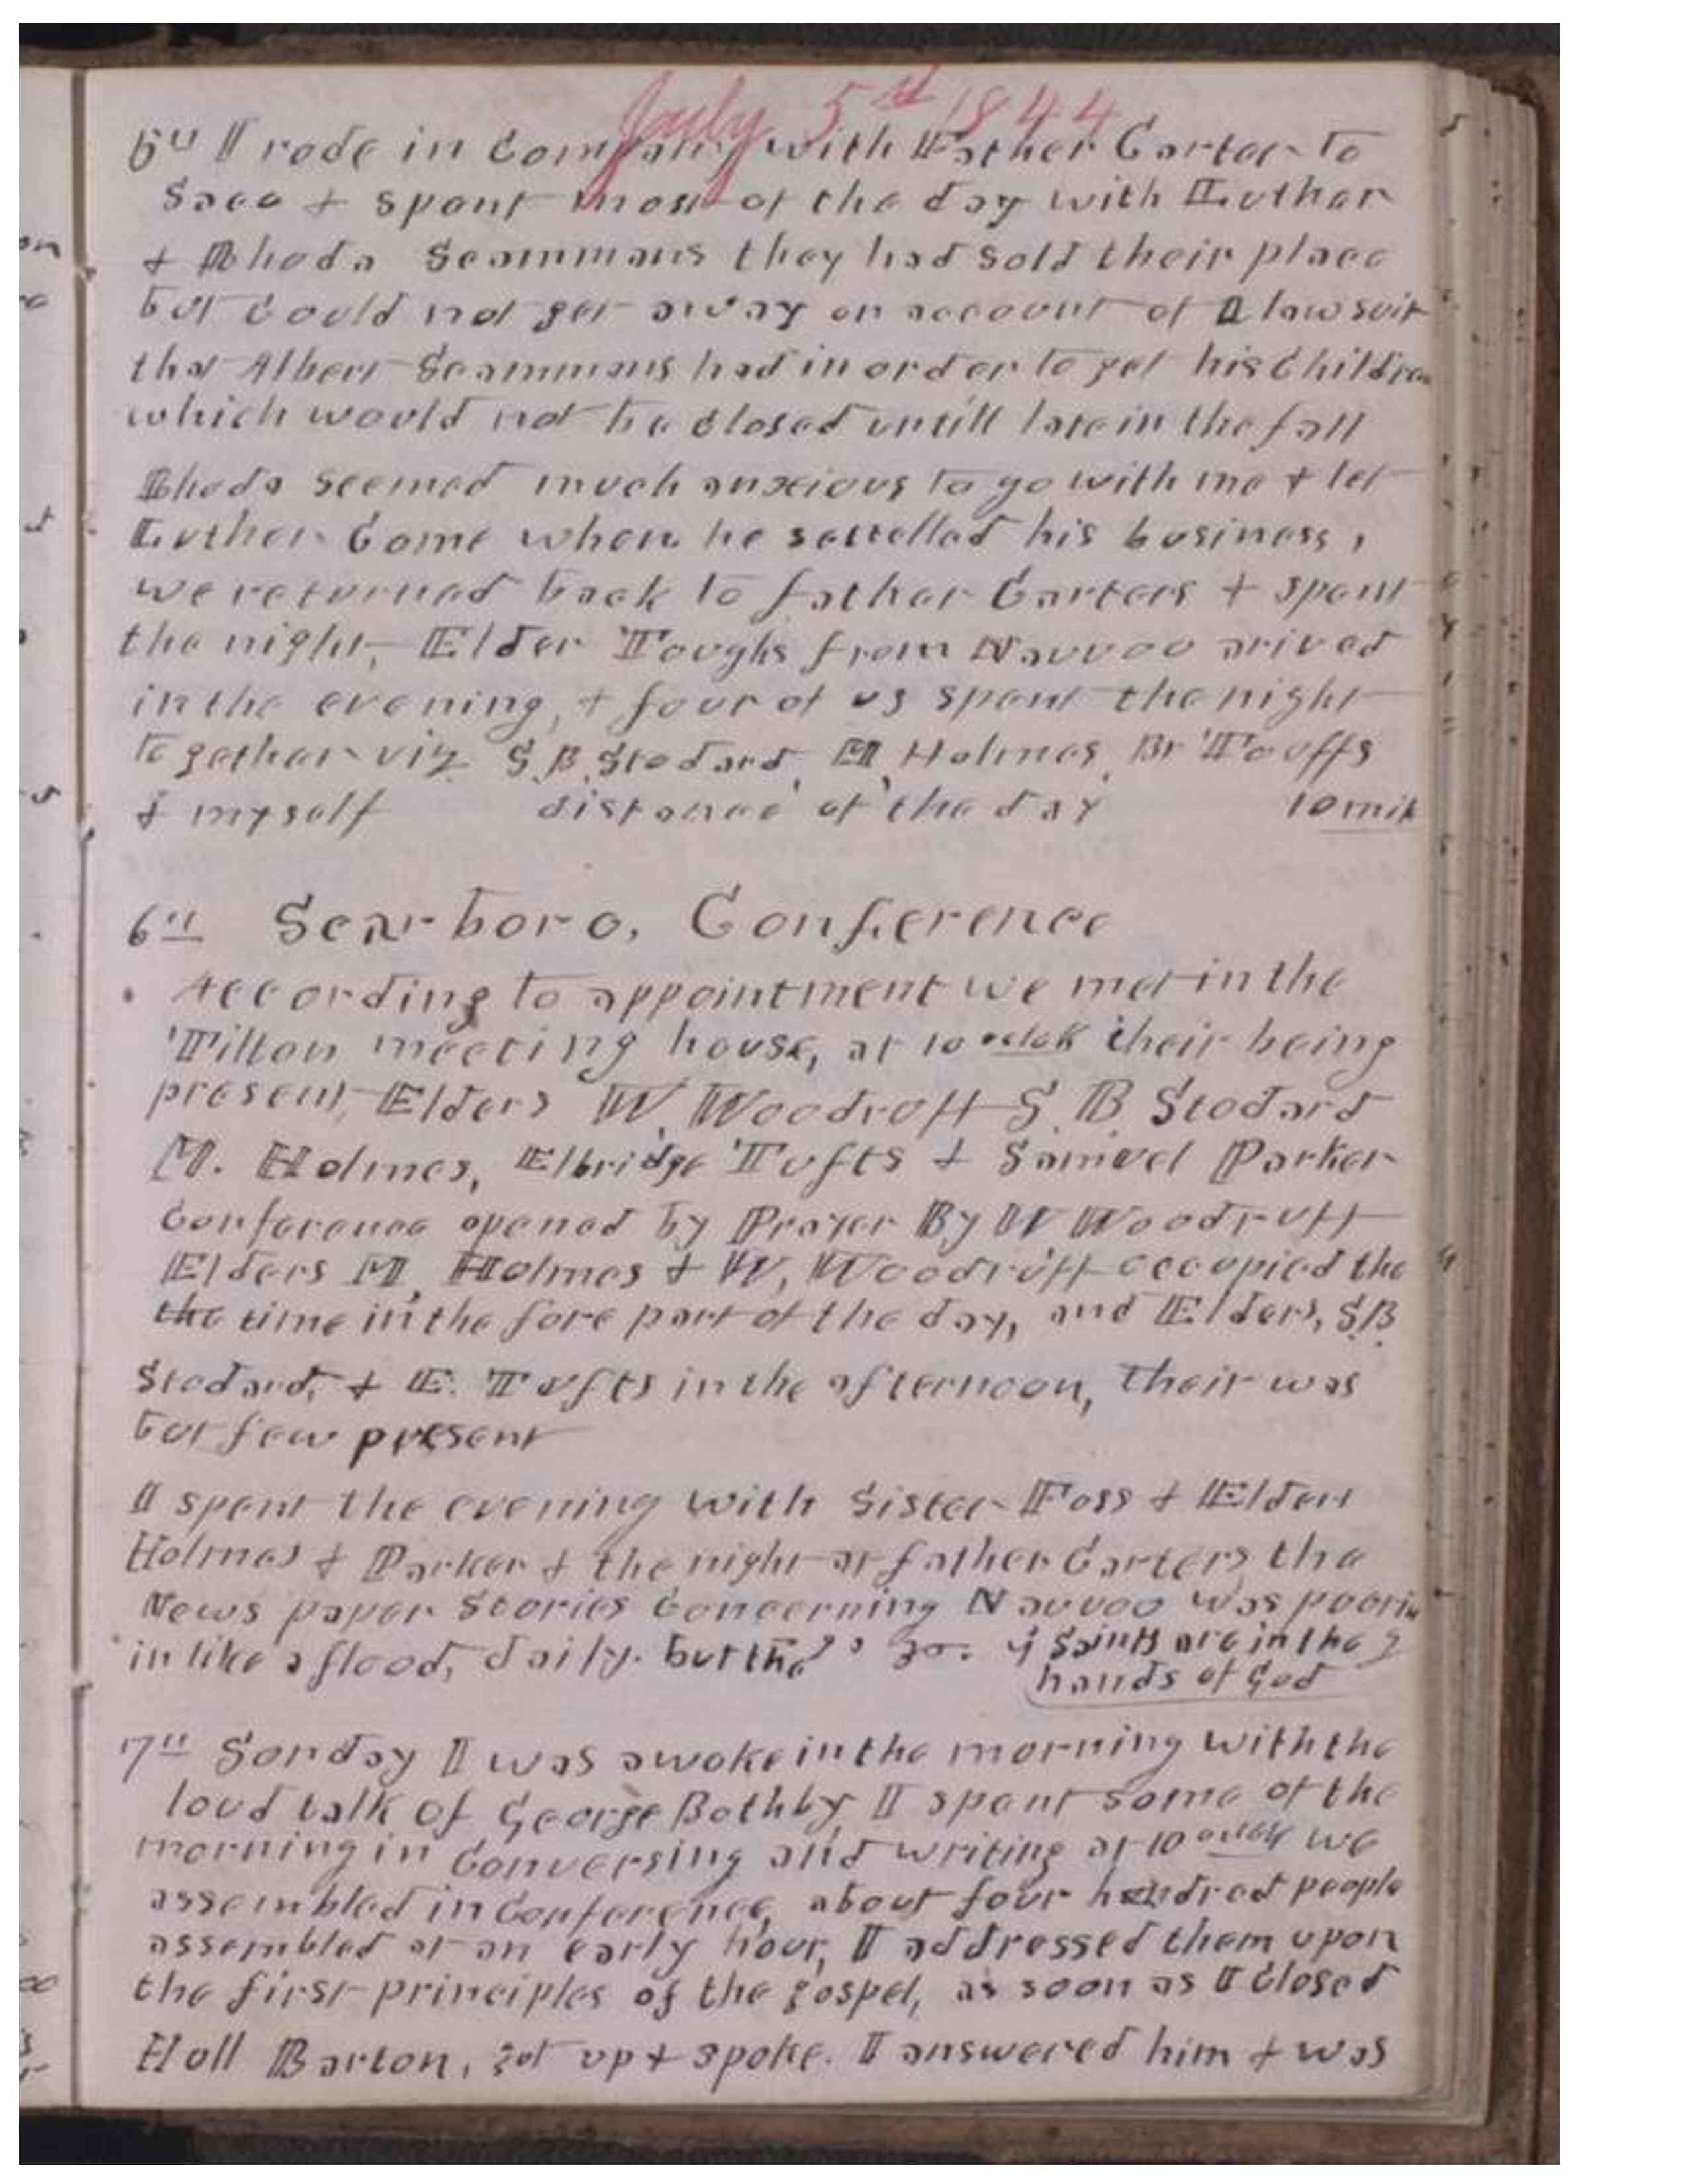 July 5th 1844
5th I rode in Company with Father Carter to
Saco & spent most of the day with Luther
& Rhoda Scammans they had sold their place
but Could not get away on account of A law suit
that Albert Scammans had in order to get his Children
which would not be Closed untill late in the fall
Rhoda seemed much anxious to go with me & let
Luther Come when he settelled his business,
we returned back to father Carters & spent
the night, Elder Toughs from Nauvoo arived
in the evening, & four of us spent the night
together viz S. B. Stodard, M, Holmes, Br Touffs
& myself distance of the day 10 mile
6th Scarboro, Conference
According to appointment we met in the
Tilton meeting house, at 10 oclok their being
present, Elders W. Woodruff S. B. Stodard
M. Holmes, Elbridge Tufts & Samuel Parker
Conference opened by Prayer By W Woodruff
Elders M, Holmes & W, Woodruff occupied the
the time in the fore part of the day, and Elders, S.B.
Stodard, & E. Tufts in the afternoon, their was
but few present
I spent the evening with Sister Foss & Elder
Holmes & Parker & the night at father Carters the
News paper Stories Concerning Nauvoo was pooring
in like a flood, daily. but the Saints are in the
hands of God
7th Sunday I was awoke in the morning with the
loud talk of George Bothby, I spent some of the
morning in Conversing and writing at 10 oclok we
assembled in Conference, about four hundred people
assembled at an early hour, I addressed them upon
the first principles of the gospel, as soon as I Closed
Holl Barton, got up & spoke. I answered him & was